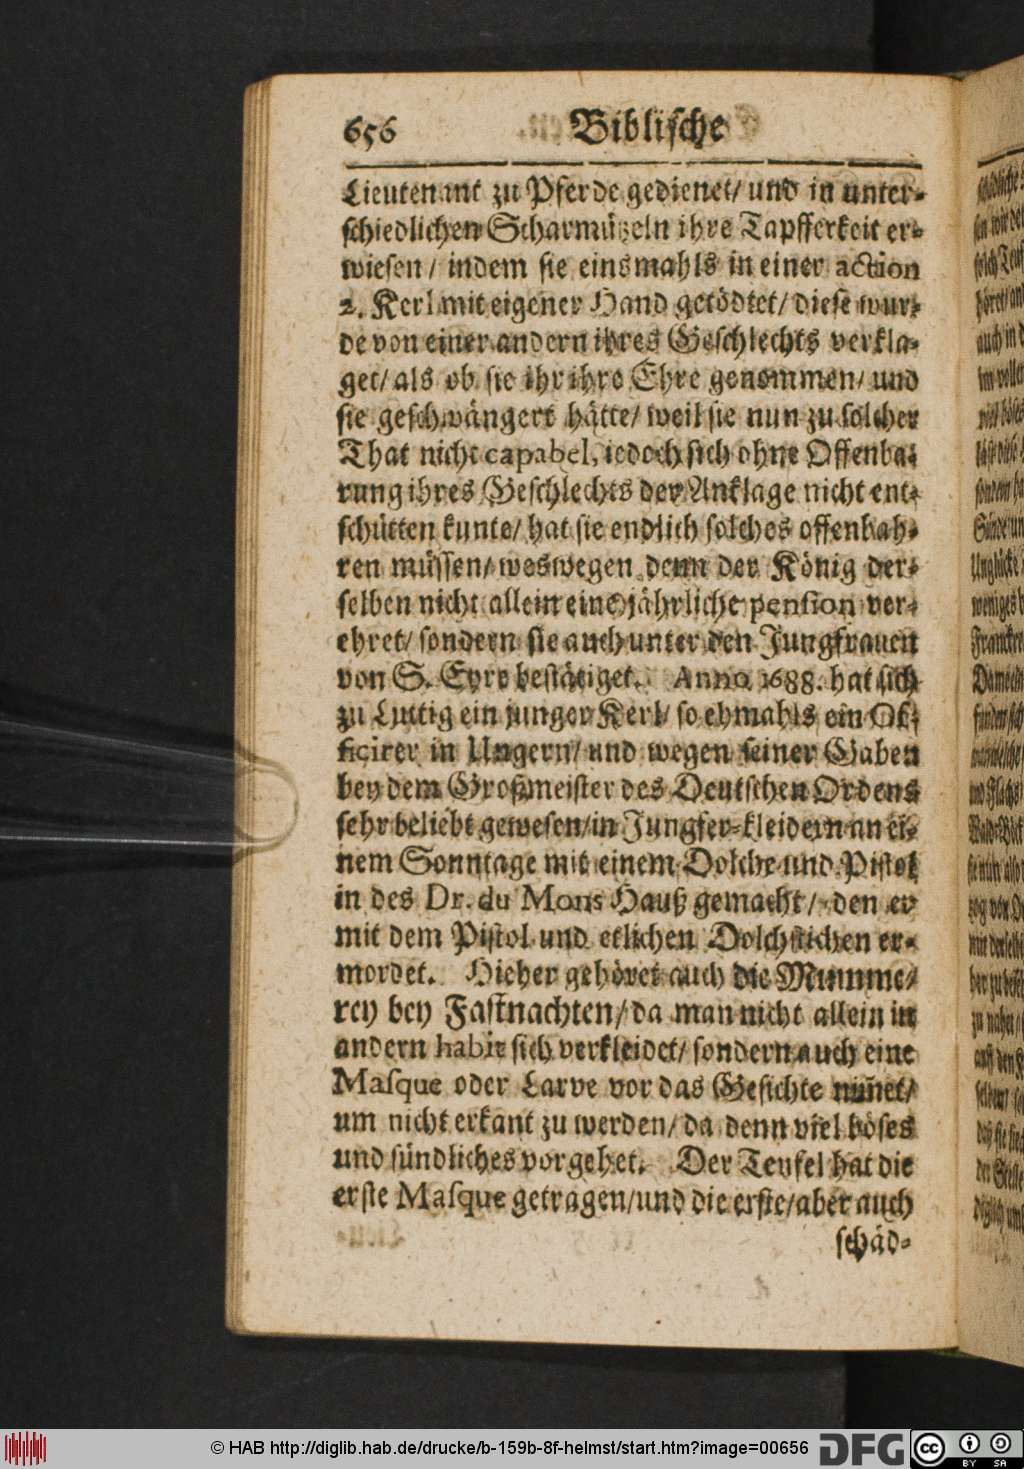 656 Biblische
Lieutenant zu Pferde gedienet/ und in unter-
schiedlichen Scharmützeln ihre Tapfferkeit er-
wiesen/ indem sie einsmahls in einer action
2. Kerl mit eigener Hand getödtet/ diese wur-
de von einer andern ihres Geschlechts verkla-
get/ als ob sie ihr ihre Ehre genommen/ und
sie geschwängert hätte/ weil sie nun zu solcher
That nicht capabel, iedoch sich ohne Offenba-
rung ihres Geschlechts der Anklage nicht ent-
schütten kunte/ hat sie endlich solches offenbah-
ren müssen/ weswegen denn der König der-
selben nicht allein eine jährliche pension ver-
ehret/ sondern sie auch unter den Jungfrauen
von S. Cyre bestätiget. Anno 1688. hat sich
zu Luttig ein junger Kerl/ so ehmahls ein Of-
ficirer in Ungern/ und wegen seiner Gaben
bey dem Großmeister des Deutschen Ordens
sehr beliebt gewesen/ in Jungfer-kleidern an ei-
nem Sonntage mit einem Dolche und Pistol
in des Dr. du Mons Hauß gemacht/ den er
mit dem Pistol und etlichen Dolchstichen er-
mordet. Hieher gehöret auch die Mumme-
rey bey Fastnachten/ da man nicht allein in
andern habit sich verkleidet/ sondern auch eine
Masque oder Larve vor das Gesichte nim̃et/
um nicht erkant zu werden/ da denn viel böses
und sündliches vorgehet. Der Teufel hat die
erste Masque getragen/ und die erste/ aber auch
schäd-
© HAB http://diglib.hab.de/drucke/b-159b-8f-helmst/start.htm?image=00656
DFG
cc BY SA